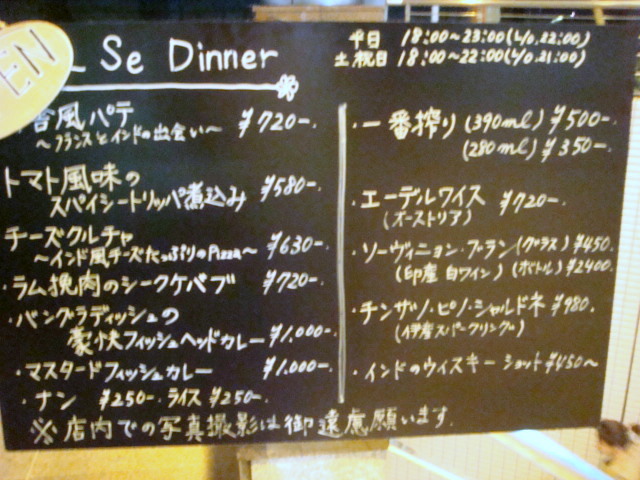 EN
Se Dinner
平日 18:00〜23:00(L/O,22:00)
土祝日 18:00〜22:00(L/O,21:00)
舎風パテ ¥720-.
〜フランスとインドの出会い〜
トマト風味の
スパイシートリッパ煮込み ¥580-.
チーズクルチャ
〜インド風チーズたっぷりのPizza〜 ¥630-.
・ラム挽肉のシークケバブ ¥720-.
・バングラディッシュの
豪快フィッシュヘッドカレー ¥1,000-.
・マスタードフィッシュカレー ¥1,000-.
・ナン ¥250-. ライス ¥250-.
・一番搾り (390ml) ¥500-.
(280ml) ¥350-.
・エーデルワイス ¥720-.
(オーストリア)
・ソーヴィニョン・ブラン (グラス) ¥450.
(印産 白ワイン) (ボトル) ¥2400.
・チンザノ・ピノ・シャルドネ ¥980.
(伊産スパークリング)
・インドのウィスキー ショット ¥450〜
※店内での写真撮影は御遠慮願います.